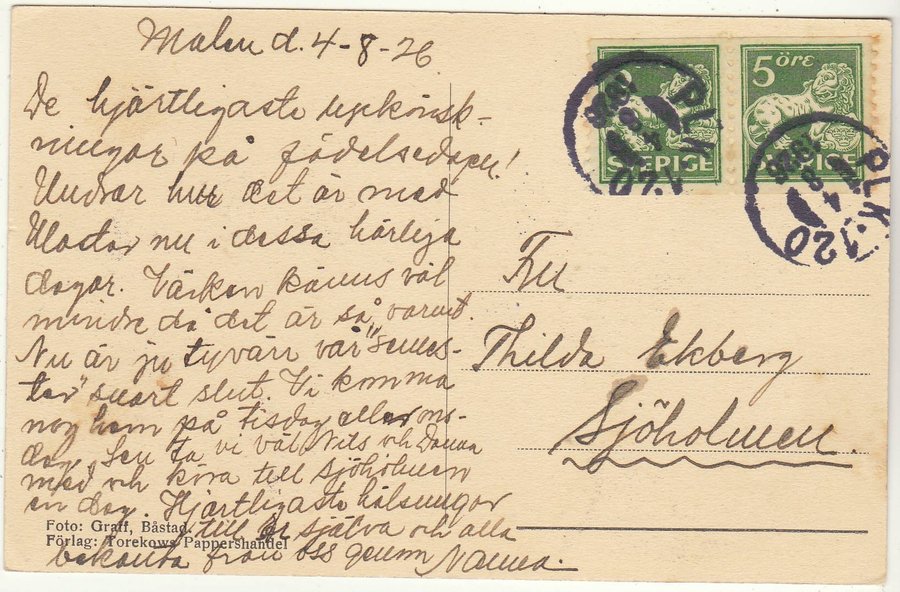 Malen d. 4-8-26
De hjärtligaste lyckönsk-
ningar på födelsedagen!
Undrar hur det är med
Moster nu i dessa härliga
dagar. Värken kännes väl
mindre då det är så varmt.
Nu är ju tyvärr vår "semes-
ter" snart slut. Vi komma
nog hem på tisdag eller ons-
dag. Sen ta vi väl Nils och
med och köra till Sjöholmen
en dag. Hjärtligaste hälsningar
till er själva och alla
bekanta från oss genom Nanna.
Foto: Graff, Båstad.
Förlag: Torekows Pappershandel
SVERIGE
5 ÖRE
SVERIGE
PLK. 120
4 8 1926
PLK. 120
4 8 1926
Fru
Thilda Ekberg
Sjöholmen.